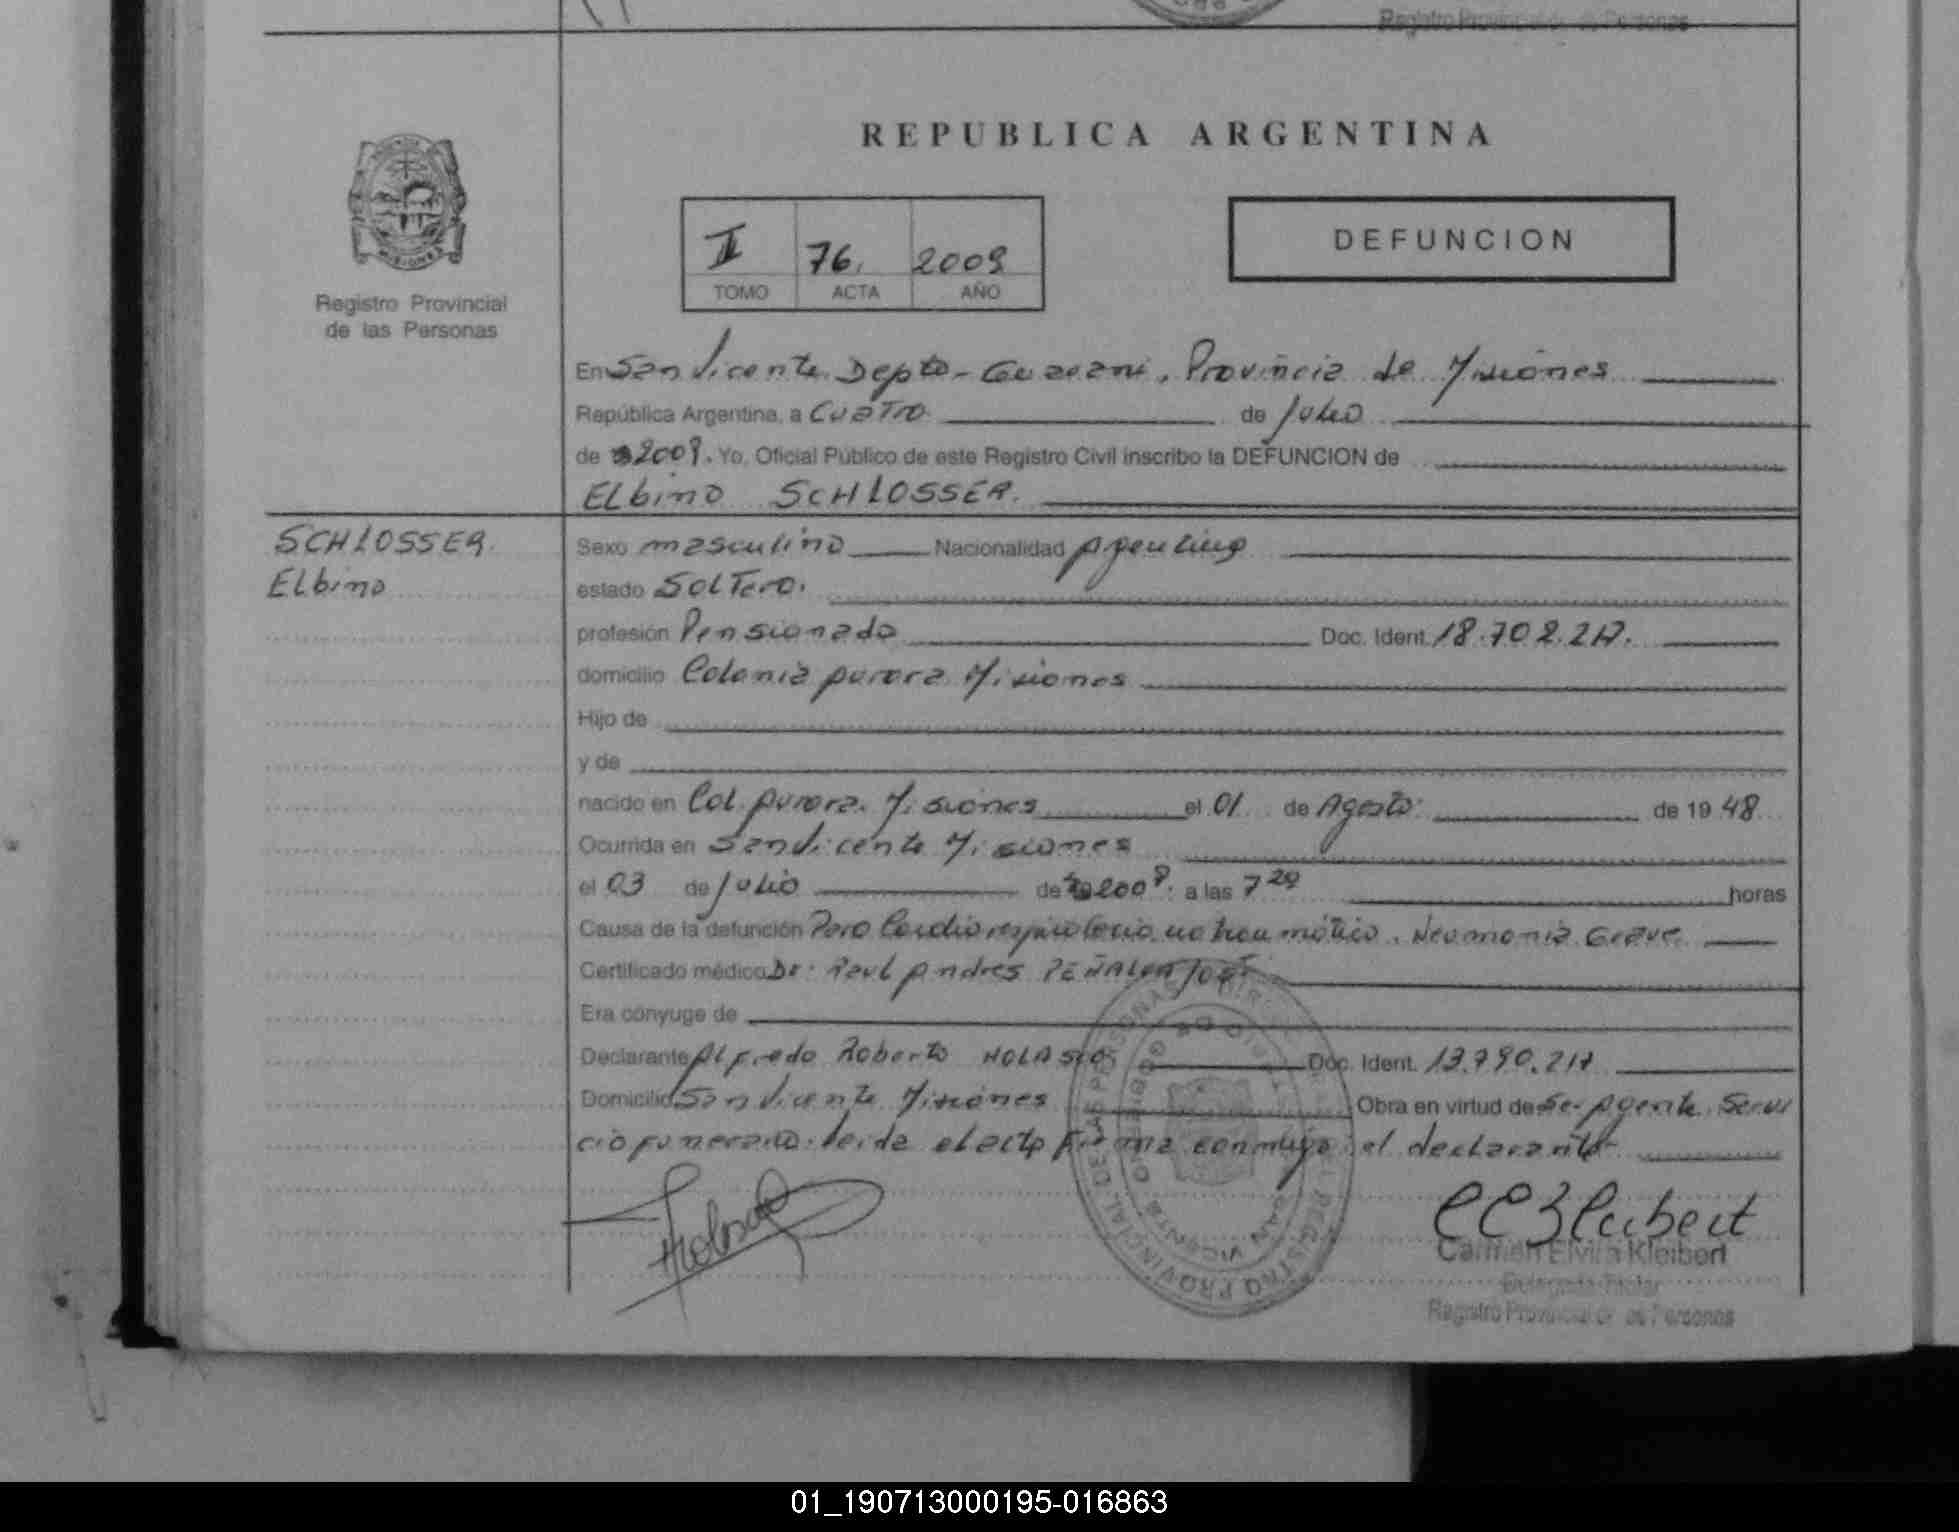 Registro Provincial de las Personas
REPUBLICA ARGENTINA
Registro Provincial
de las Personas
II 76. 2009
TOMO ACTA AÑO
DEFUNCION
En San Vicente Depto - Guarani, Provincia de Misiones
República Argentina, a Cuatro de Julio
de 2009. Yo, Oficial Público de este Registro Civil inscribo la DEFUNCION de
Elbino SCHLOSSER.
SCHLOSSER.
Elbino
Sexo masculino Nacionalidad Argentino
estado Soltero.
profesión Pensionado Doc. Ident. 18.702.217.
domicilio Colonia Aurora Misiones
Hijo de
y de
nacido en Col. Aurora. Misiones el 01 de Agosto de 19 48
Ocurrida en San Vicente Misiones
el 03 de Julio de 2009. a las 7 20 horas
Causa de la defunción Paro Cardio respiratorio no traumático. Neumonia Grave.
Certificado médico Dr: Raul Andres PEÑALVA JOSÉ
Era cónyuge de
Declarante Alfredo Roberto NOLASCO Doc. Ident. 13.790.217
Domicilio San Vicente Misiones Obra en virtud de Se- Agente Servi
cio funerario. leida el acta Firma conmigo el declarante
REGISTRO PROVINCIAL DE LAS PERSONAS
SAN VICENTE
Carmen Elvira Kleibert
Delegada Titular
Registro Provincial de las Personas
01_190713000195-016863